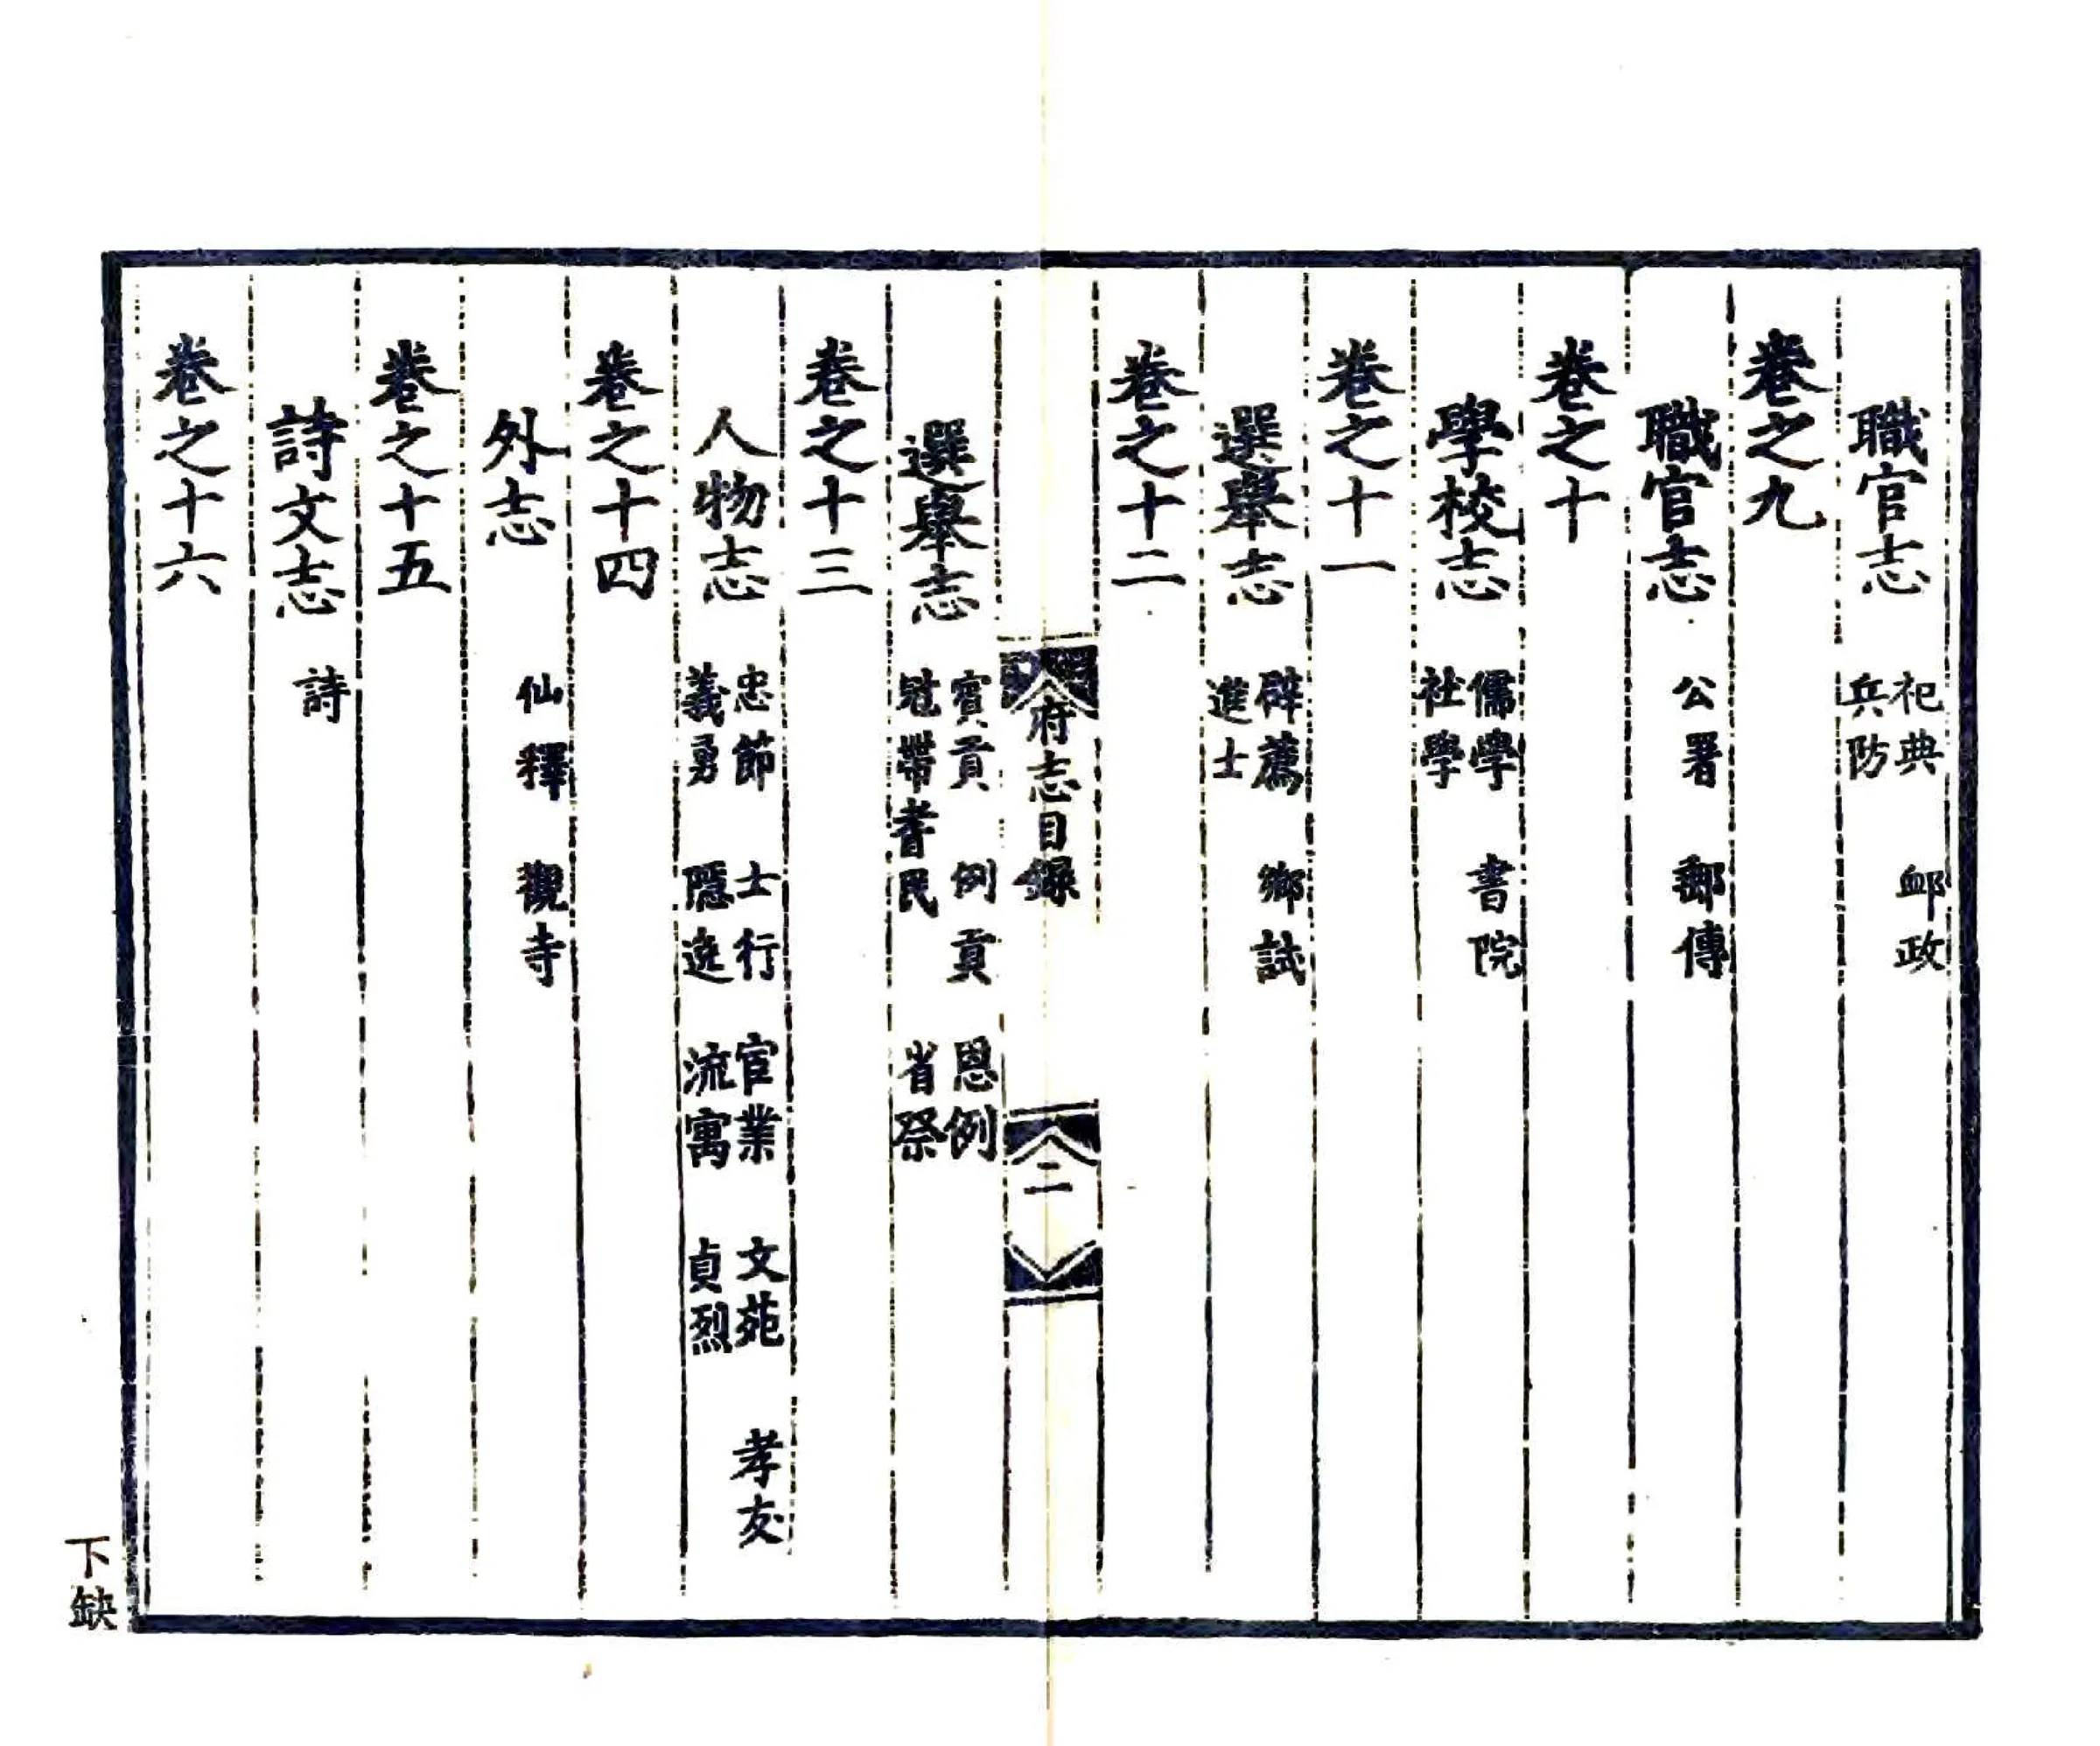 職官志 祀典 卹政
兵防
卷之九
職官志 公署 郵傳
卷之十
學校志 儒學 書院
社學
卷之十一
選舉志 辟薦 鄉試
進士
卷之十二
府志目錄 二
選舉志 賓貢 例貢 恩例
冠帶耆民 省祭
卷之十三
人物志 忠節 士行 宦業 文苑 孝友
義勇 隱逸 流寓 貞烈
卷之十四
外志 仙釋 觀寺
卷之十五
詩文志 詩
卷之十六
下缺